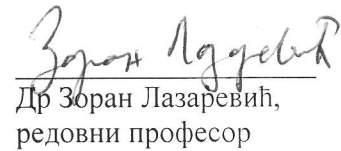 Зоран Лазаревић
Др Зоран Лазаревић,
редовни професор